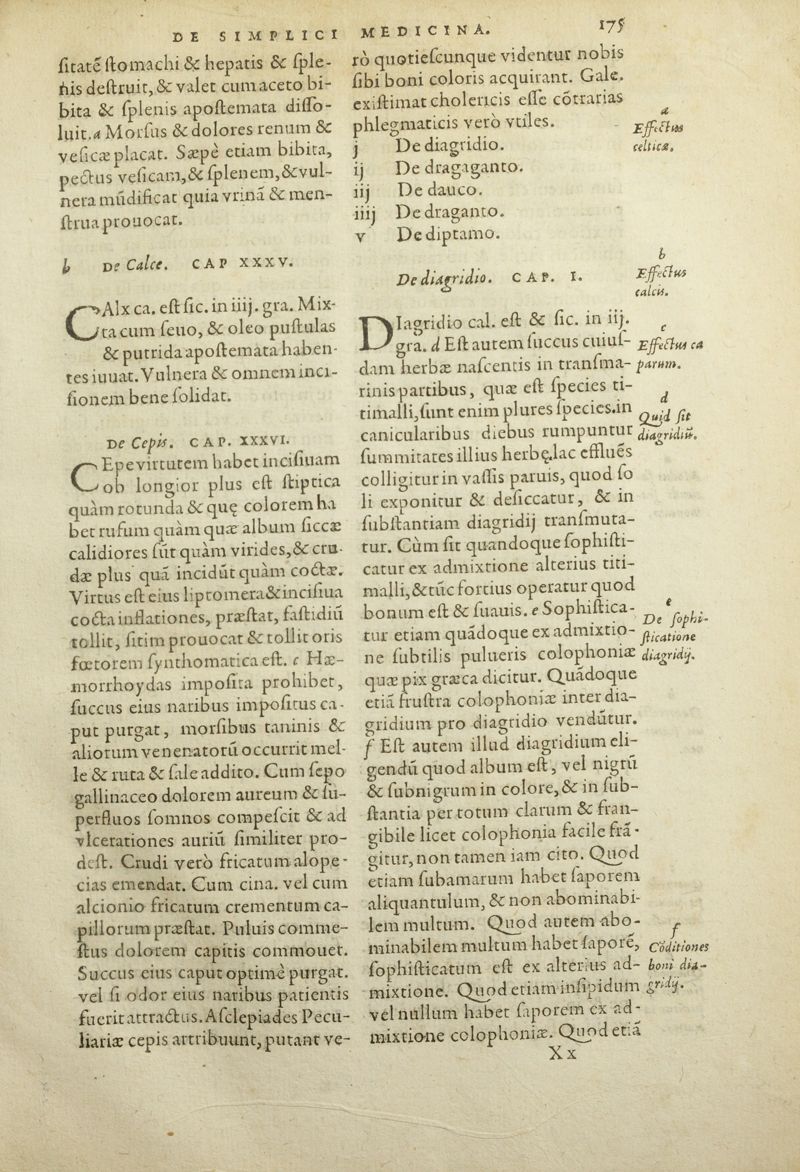 DE SIMPLICI MEDICINA. 175
ſitatē ſtomachi & hepatis & ſple-
nis deſtruit, & valet cum aceto bi-
bita & ſplenis apoſtemata diſſo-
luit. a Morſus & dolores renum &
veſicæ placat. Sæpè etiam bibita,
pectus veſicam, & ſplenem, & vul-
nera mūdificat quia vrinā & men-
ſtrua prouocat.
b De Calce. CAP XXXV.
CAlx ca. eſt ſic. in iiij. gra. Mix-
ta cum ſeuo, & oleo puſtulas
& putrida apoſtemata haben-
tes iuuat. Vulnera & omnem inci-
ſionem bene ſolidat.
De Cepis. CAP. XXXVI.
CEpe virtutem habet inciſiuam
ob longior plus eſt ſtiptica
quàm rotunda & quę colorem ha
bet rufum quàm quæ album ſiccæ
calidiores ſūt quàm virides, & cru-
dæ plus quā incidūt quàm coctæ.
Virtus eſt eius liptomera & inciſiua
cocta inflationes, præſtat, faſtidiū
tollit, ſitim prouocat & tollit oris
fœtorem ſynthomatica eſt. c Hæ-
morrhoydas impoſita prohibet,
ſuccus eius naribus impoſitus ca-
put purgat, morſibus taninis &
aliorum venenatorū occurrit mel-
le & ruta & ſale addito. Cum ſepo
gallinaceo dolorem aureum & ſu-
perfluos ſomnos compeſcit & ad
vlcerationes auriū ſimiliter pro-
deſt. Crudi verò fricatum alope-
cias emendat. Cum cina. vel cum
alcionio fricatum crementum ca-
pillorum præſtat. Puluis comme-
ſtus dolorem capitis commouet.
Succus eius caput optimè purgat.
vel ſi odor eius naribus patientis
fuerit attractus. Aſclepiades Pecu-
liariæ cepis attribuunt, putant ve-
rò quotieſcunque videntur nobis
ſibi boni coloris acquirant. Gale.
exiſtimat cholericis eſſe cōtrarias
phlegmaticis verò vtiles.
j De diagridio.
ij De dragaganto.
iij De dauco.
iiij De draganto.
v De diptamo.
De diagridio. CAP. I.
DIagridio cal. eſt & ſic. in iij.
gra. d Eſt autem ſuccus cuiuſ-
dam herbæ naſcentis in tranſma-
rinis partibus, quæ eſt ſpecies ti-
timalli, ſunt enim plures ſpecies. in
canicularibus diebus rumpuntur
ſummitates illius herbę. lac efflues
colligitur in vaſſis paruis, quod ſo
li exponitur & deſiccatur, & in
ſubſtantiam diagridij tranſmuta-
tur. Cùm ſit quandoque ſophiſti-
catur ex admixtione alterius titi-
malli, & tūc fortius operatur quod
bonum eſt & ſuauis. e Sophiſtica-
tur etiam quādoque ex admixtio-
ne ſubtilis pulueris colophoniæ
quæ pix græca dicitur. Quādoque
etiā fruſtra colophoniæ inter dia-
gridium pro diagridio vendūtur.
f Eſt autem illud diagridium eli-
gendū quod album eſt, vel nigrū
& ſubnigrum in colore, & in ſub-
ſtantia per totum clarum & fran-
gibile licet colophonia facile frā-
gitur, non tamen iam cito. Quod
etiam ſubamarum habet ſaporem
aliquantulum, & non abominabi-
lem multum. Quod autem abo-
minabilem multum habet ſaporē,
ſophiſticatum eſt ex alterius ad-
mixtione. Quod etiam inſipidum
vel nullum habet ſaporem ex ad-
mixtione colophoniæ. Quod etiā
Xx
a
Effectus
celticæ.
b
Effectus
calcis.
c
Effectus ca
parum.
d
Quid ſit
diagridiū.
e
De ſophi-
ſticatione
diagridij.
f
Cōditiones
boni dia-
gridij.